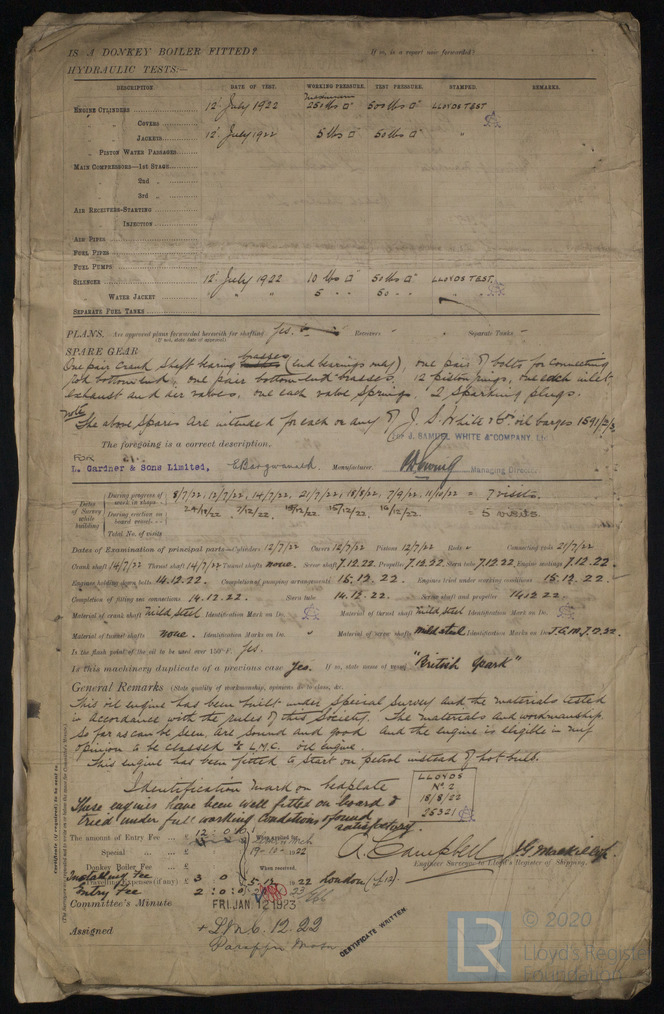 IS A DONKEY BOILER FITTED? If so, is a report now forwarded?
HYDRAULIC TESTS:—
DESCRIPTION DATE OF TEST. WORKING PRESSURE. TEST PRESSURE. STAMPED. REMARKS.
ENGINE CYLINDERS 12 July 1922 Maximum 250 lbs □" 500 lbs □" LLOYDS TEST
" COVERS
" JACKETS 12 July 1922 5 lbs □" 50 lbs □" "
" PISTON WATER PASSAGES
MAIN COMPRESSORS—1st STAGE
" 2nd "
" 3rd "
AIR RECEIVERS-STARTING
" INJECTION
AIR PIPES
FUEL PIPES
FUEL PUMPS
SILENCER 12 July 1922 10 lbs □" 50 lbs □" LLOYDS TEST
" WATER JACKET " " " 5 " " 50 " " "
SEPARATE FUEL TANKS
PLANS. Are approved plans forwarded herewith for shafting yes. Receivers Separate Tanks
(If not, state date of approval)
SPARE GEAR
One pair crank shaft bearing brasses (end bearings only), one pair of bolts for connecting
rod bottom end, one pair bottom end brasses 12 piston rings, one each inlet
exhaust and air valves, one each valve springs. 2 sparking plugs.
Note The above spares are intended for each or any of J. S. White & Co oil barges 1591/2/3
FOR J. SAMUEL WHITE & COMPANY, Ltd
The foregoing is a correct description,
FOR
L. Gardner & Sons Limited, Manufacturer. Managing Director.
Dates of Survey while building
During progress of work in shops - 8/7/22, 12/7/22, 14/7/22, 21/7/22, 18/8/22, 7/9/22, 11/10/22 = 7 visits.
During erection on board vessel - 7/12/22. 15/12/22 16/12/22. = 5 visits
Total No. of visits
Dates of Examination of principal parts—Cylinders 12/7/22 Covers 12/7/22 Pistons 12/7/22 Rods " Connecting rods 21/7/22
Crank shaft 14/7/22 Thrust shaft 14/7/22 Tunnel shafts none. Screw shaft 7.12.22. Propeller 7.12.22 Stern tube 7.12.22 Engine seatings 7.12.22.
Engines holding down bolts 14.12.22. Completion of pumping arrangements 15.12.22. Engines tried under working conditions 15.12.22.
Completion of fitting sea connections 14.12.22. Stern tube 14.12.22. Screw shaft and propeller 14.12.22
Material of crank shaft mild steel Identification Mark on Do. Material of thrust shaft mild steel Identification Mark on Do.
Material of tunnel shafts none. Identification Marks on Do. " Material of screw shafts mild steel Identification Marks on Do. J.G.M. 7.12.22.
Is the flash point of the oil to be used over 150° F. yes.
Is this machinery duplicate of a previous case Yes. If so, state name of vessel "British Spark"
General Remarks (State quality of workmanship, opinions as to class, &c.
This oil engine has been built under special survey and the materials tested
in accordance with the rules of this Society. The materials and workmanship
so far as can be seen, are sound and good and the engine is eligible in my
opinion to be classed + L.M.C. oil engine.
This engine has been fitted to start on petrol instead of hot bulb.
Identification mark on bedplate
LLOYDS
No 2
18/8/22
25321
These engines have been well fitted on board &
tried under full working conditions & found
satisfactory.
The amount of Entry Fee £ 12 : 0 : 0 When applied for,
Special £ 19-10-1922
Donkey Boiler Fee £ When received,
Installing Fee
Travelling Expenses (if any) £ 3 0 1922 London
Entry Fee 2 : 0 :
A. Campbell J.G. Mackillop
Engineer Surveyor to Lloyd's Register of Shipping.
Committee's Minute FRI. JAN. 12 1923
Assigned + LMC. 12.22
Paraffin Motor
CERTIFICATE WRITTEN.
LR © 2020
Lloyd's Register
Foundation